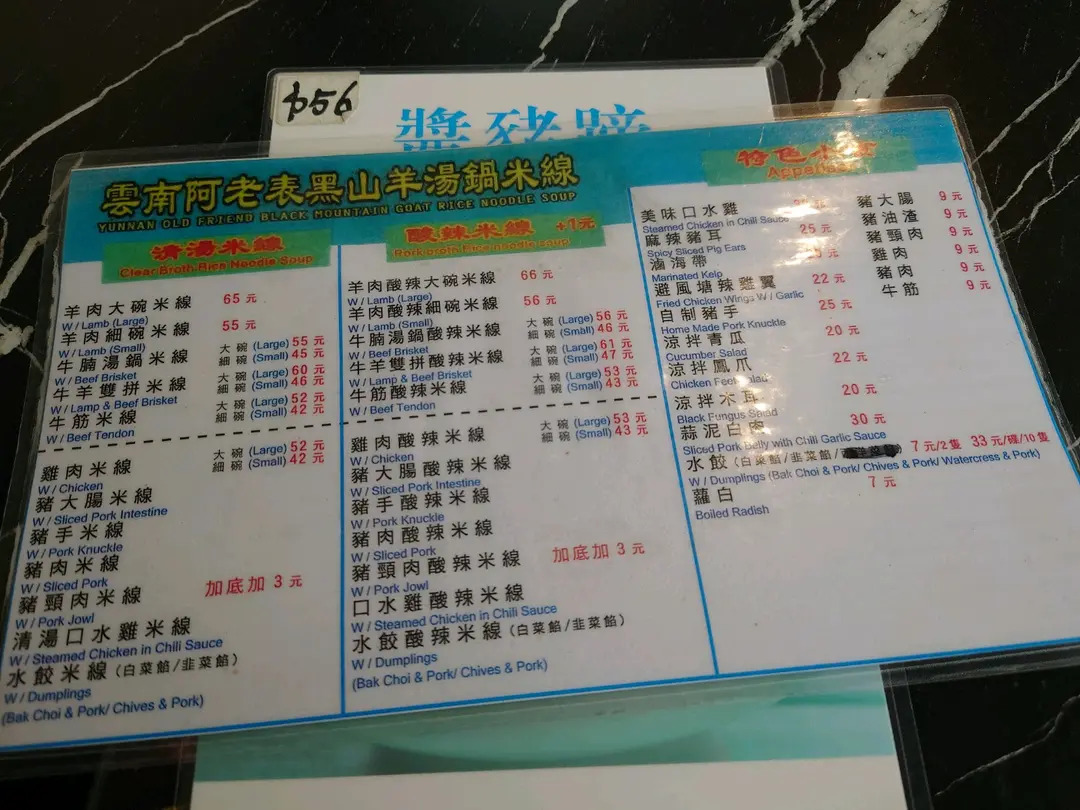 醬豬蹄
雲南阿老表黑山羊湯鍋米線
YUNNAN OLD FRIEND BLACK MOUNTAIN GOAT RICE NOODLE SOUP
清湯米線
Clear Broth Rice Noodle Soup
羊肉大碗米線 65 元
W / Lamb (Large)
羊肉細碗米線 55 元
W / Lamb (Small)
牛腩湯鍋米線 大碗 (Large) 55 元
細碗 (Small) 45 元
W / Beef Brisket
牛羊雙拼米線 大碗 (Large) 60 元
細碗 (Small) 46 元
W / Lamp & Beef Brisket
牛筋米線 大碗 (Large) 52 元
細碗 (Small) 42 元
W / Beef Tendon
雞肉米線 大碗 (Large) 52 元
細碗 (Small) 42 元
W / Chicken
豬大腸米線
W / Sliced Pork Intestine
豬手米線
W / Pork Knuckle
豬肉米線
W / Sliced Pork
豬頸肉米線 加底加 3 元
W / Pork Jowl
清湯口水雞米線
W / Steamed Chicken in Chili Sauce
水餃米線 (白菜餡/韭菜餡)
W / Dumplings
(Bak Choi & Pork/ Chives & Pork)
酸辣米線 +1元
Pork broth Rice noodle soup
羊肉酸辣大碗米線 66 元
W / Lamb (Large)
羊肉酸辣細碗米線 56 元
W / Lamb (Small)
牛腩湯鍋酸辣米線 大碗 (Large) 56 元
細碗 (Small) 46 元
W / Beef Brisket
牛羊雙拼酸辣米線 大碗 (Large) 61 元
細碗 (Small) 47 元
W / Lamp & Beef Brisket
牛筋酸辣米線 大碗 (Large) 53 元
細碗 (Small) 43 元
W / Beef Tendon
雞肉酸辣米線 大碗 (Large) 53 元
細碗 (Small) 43 元
W / Chicken
豬大腸酸辣米線
W / Sliced Pork Intestine
豬手酸辣米線
W / Pork Knuckle
豬肉酸辣米線
W / Sliced Pork
豬頸肉酸辣米線 加底加 3 元
W / Pork Jowl
口水雞酸辣米線
W / Steamed Chicken in Chili Sauce
水餃酸辣米線 (白菜餡/韭菜餡)
W / Dumplings
(Bak Choi & Pork/ Chives & Pork)
特色小
美味口水雞 元
Steamed Chicken in Chili Sauce
麻辣豬耳 25 元
Spicy Sliced Pig Ears
滷海帶 元
Marinated Kelp
避風塘辣雞翼 22 元
Fried Chicken Wings W / Garlic
自制豬手 25 元
Home Made Pork Knuckle
涼拌青瓜 20 元
Cucumber Salad
涼拌鳳爪 22 元
Chicken Feet Salad
涼拌木耳 20 元
Black Fungus Salad
蒜泥白肉 30 元
Sliced Pork Belly with Chili Garlic Sauce
水餃 (白菜餡/韭菜餡/ ) 7 元/2隻 33 元/碟/10隻
W / Dumplings (Bak Choi & Pork/ Chives & Pork/ Watercress & Pork)
蘿白 7 元
Boiled Radish
豬大腸 9 元
豬油渣 9 元
豬頸肉 9 元
雞肉 9 元
豬肉 9 元
牛筋 9 元